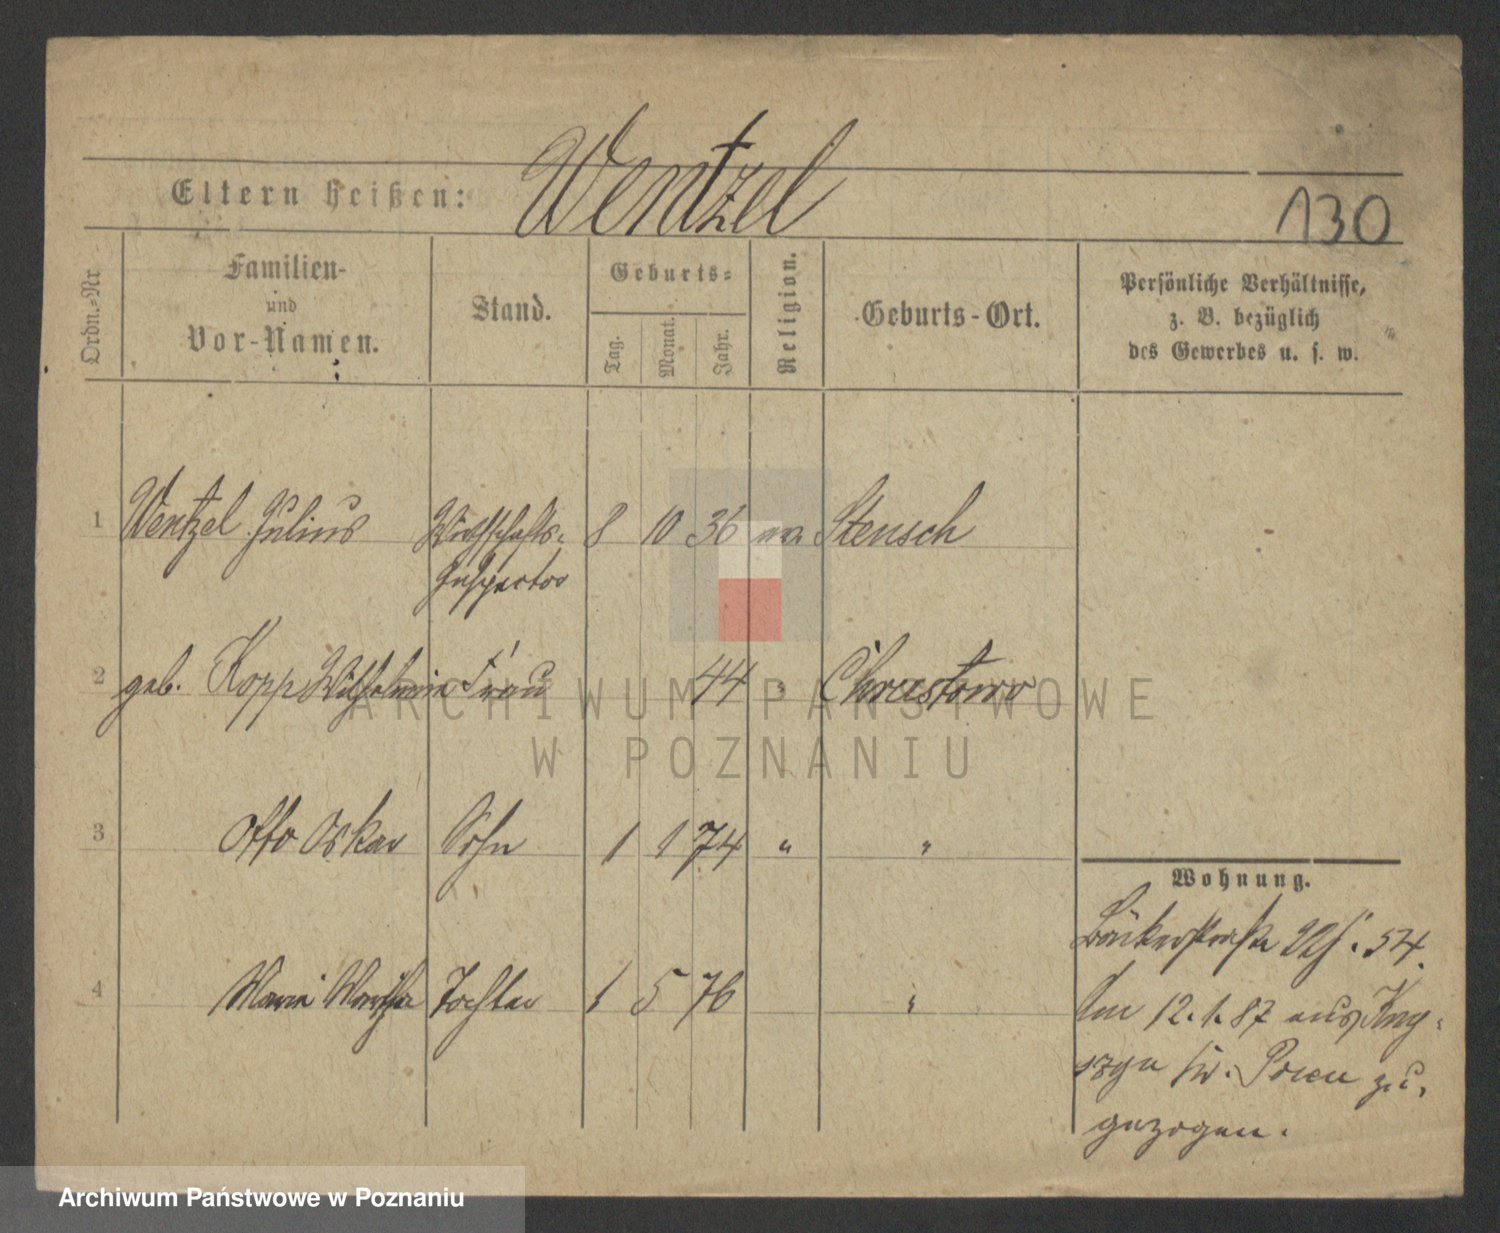 Wentzel
Eltern heißen:
130
Ordn.-Nr
Familien-
und
Vor-Namen.
Stand.
Geburts-
Tag.
Monat.
Jahr.
Religion.
Geburts-Ort.
Persönliche Verhältnisse,
z. B. bezüglich
des Gewerbes u. s. w.
1 Wentzel Julius Wirthschafts- 8 10 36 ev. Stensch
Inspector
2 geb. Kopp Wilhelmine Frau 44 " Chrustowo
ARCHIWUM PAŃSTWOWE
W POZNANIU
3 Otto Oskar Sohn 1 1 74 " "
Wohnung.
Bäckerstraße 22 54.
4 Marie Martha Tochter 1 5 76 "
Am 12.1.87 aus
Kr. Posen zu-
gezogen.
Archiwum Państwowe w Poznaniu